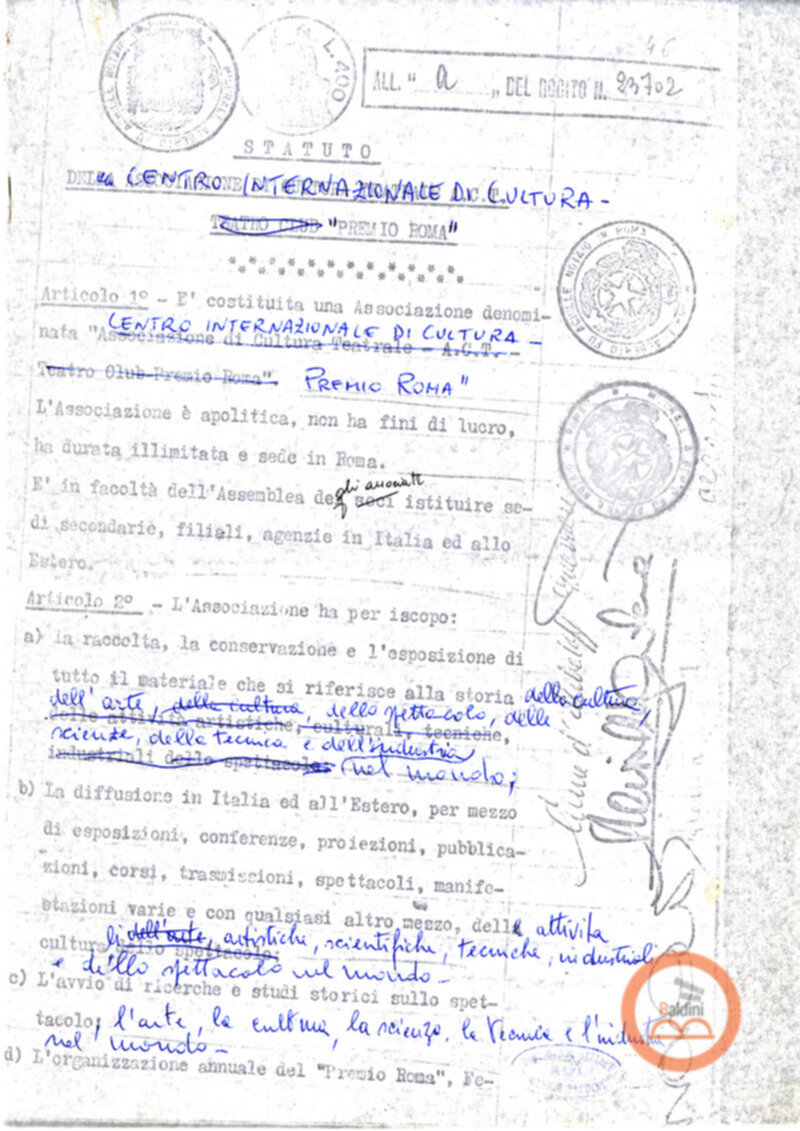 L. 400
ALL. " a " DEL ROGITO N. 23702
STATUTO
CENTRO INTERNAZIONALE DI CULTURA -
TEATRO CLUB "PREMIO ROMA"
Articolo 1º - E' costituita una Associazione denomi-
nata "Associazione di Cultura Teatrale - A.C.T. -
CENTRO INTERNAZIONALE DI CULTURA -
Teatro Club-Premio Roma". PREMIO ROMA"
L'Associazione è apolitica, non ha fini di lucro,
ha durata illimitata e sede in Roma.
gli associati
E' in facoltà dell'Assemblea dei soci istituire se-
di secondarie, filiali, agenzie in Italia ed allo
Estero.
Articolo 2º - L'Associazione ha per iscopo:
a) la raccolta, la conservazione e l'esposizione di
tutto il materiale che si riferisce alla storia della cultura,
dell'arte, della cultura, dello spettacolo, delle
delle attività artistiche, culturali, tecniche,
scienze, della tecnica e dell'industria
industriali dello spettacolo; nel mondo;
b) La diffusione in Italia ed all'Estero, per mezzo
di esposizioni, conferenze, proiezioni, pubblica-
zioni, corsi, trasmissioni, spettacoli, manife-
stazioni varie e con qualsiasi altro mezzo, delle attività
li dell'arte, artistiche, scientifiche, tecniche, industriali
cultura dello spettacolo.
e dello spettacolo nel mondo -
c) L'avvio di ricerche e studi storici sullo spet-
tacolo, l'arte, la cultura, la scienza, la tecnica e l'industria
nel mondo -
d) L'organizzazione annuale del "Premio Roma", Fe-
Baldini